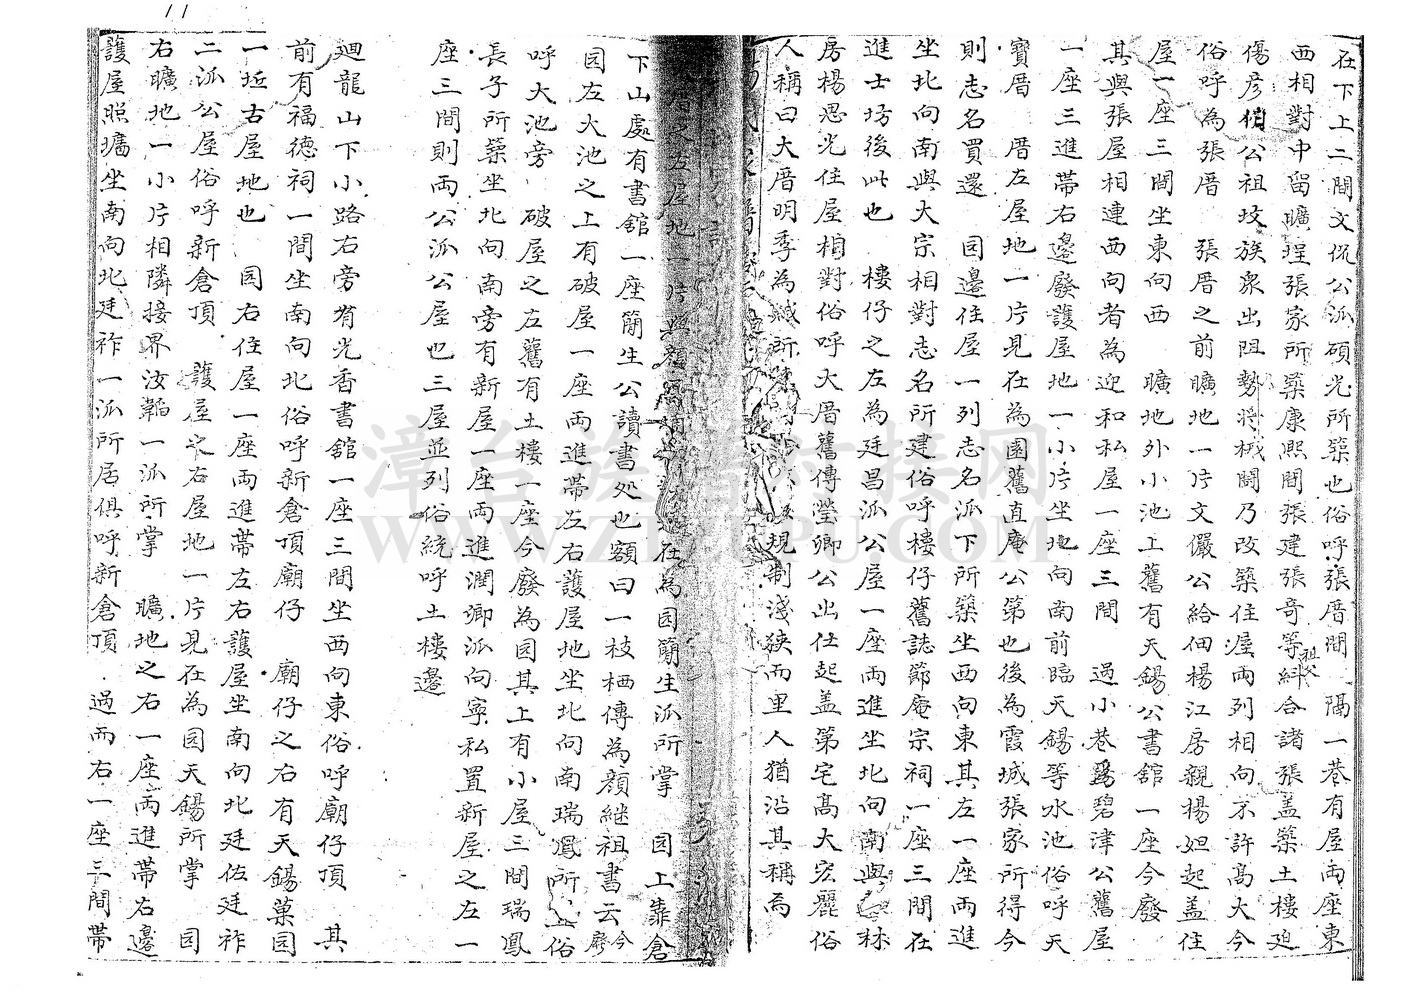 11
在下上二間文侃公派碩光所築也俗呼張厝間 隔一巷有屋両座東
西相對中留曠埕張家所築康熙間張建張奇等糾合諸張盖築土樓廹
祖父
傷彦伯公祖坟族衆出阻勢將械闘乃改築住屋両列相向不許高大今
俗呼為張厝 張厝之前曠地一片文儼公給佃楊江房親楊妲起盖住
屋一座三間坐東向西 曠地外小池上舊有天錫公書舘一座今廢
其與張屋相連西向者為迎和私屋一座三間 過小巷爲碧津公舊屋
一座三進帯右邊廢護屋地一小片坐地向南前臨天錫等水池俗呼天
寶厝 厝左屋地一片見在為園舊直庵公第也後為霞城張家所得今
則志名買還 园邊住屋一列志名派下所築坐西向東其左一座両進
坐北向南與大宗相對志名所建俗呼樓仔舊誌節庵宗祠一座三間在
進士坊後此也 樓仔之左為廷昌派公屋一座両進坐北向南與林
房楊思光住屋相對俗呼大厝舊傳瑩卿公出仕起盖第宅高大宏麗俗
人稱曰大厝明季為 規制淺狹而里人猶沿其稱焉
之左屋地一片與 在為园簡生派所掌 园上靠倉
下山處有書舘一座簡生公讀書処也額曰一枝栖傳為顔継祖書云今廢
园左大池之上有破屋一座両進帯左右護屋地坐北向南瑞鳳所 俗
呼大池旁 破屋之左舊有土樓一座今廢為园其上有小屋三間瑞鳳
長子所築坐北向南旁有新屋一座両進潤卿派向寧私置新屋之左一
座三間則両公派公屋也三屋並列俗統呼土樓邊
廻龍山下小路右旁有光香書舘一座三間坐西向東俗呼廟仔頂 其
前有福德祠一間坐南向北俗呼新倉頂廟仔 廟仔之右有天錫菓园
一坵古屋地也 园右住屋一座両進帯左右護屋坐南向北廷佐廷祚
二派公屋俗呼新倉頂 護屋之右屋地一片見在為园天錫所掌 园
右曠地一小片相隣接界汝韜一派所掌 曠地之右一座両進帯右邊
護屋照壙坐南向北廷祚一派所居俱呼新倉頂 過而右一座三間帯
漳台族谱对接网
WWW.ZTZUPU.COM